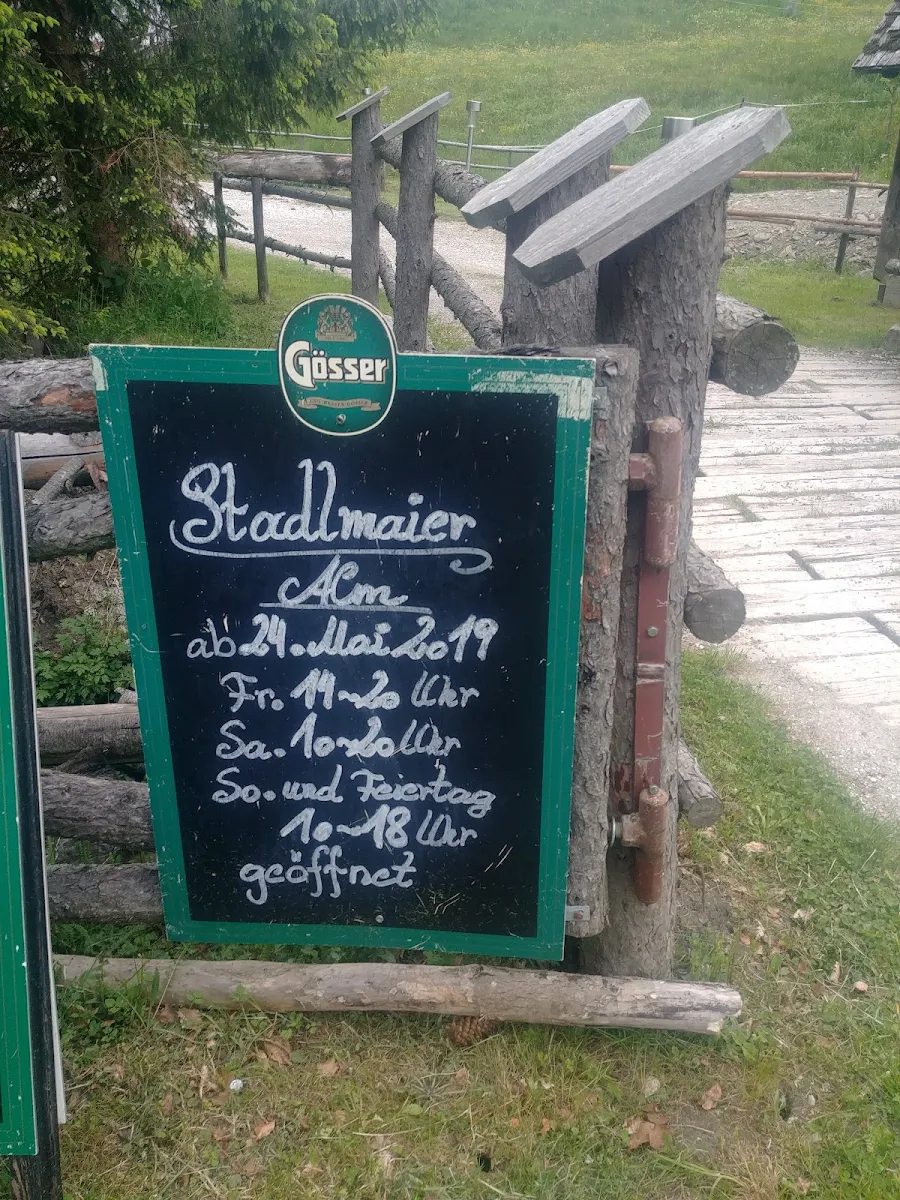 Gösser
GUT BESSER GÖSSER
Stadlmaier
Alm
ab 24. Mai 2019
Fr. 14~20 Uhr
Sa. 10~20 Uhr
So. und Feiertag
10~18 Uhr
geöffnet